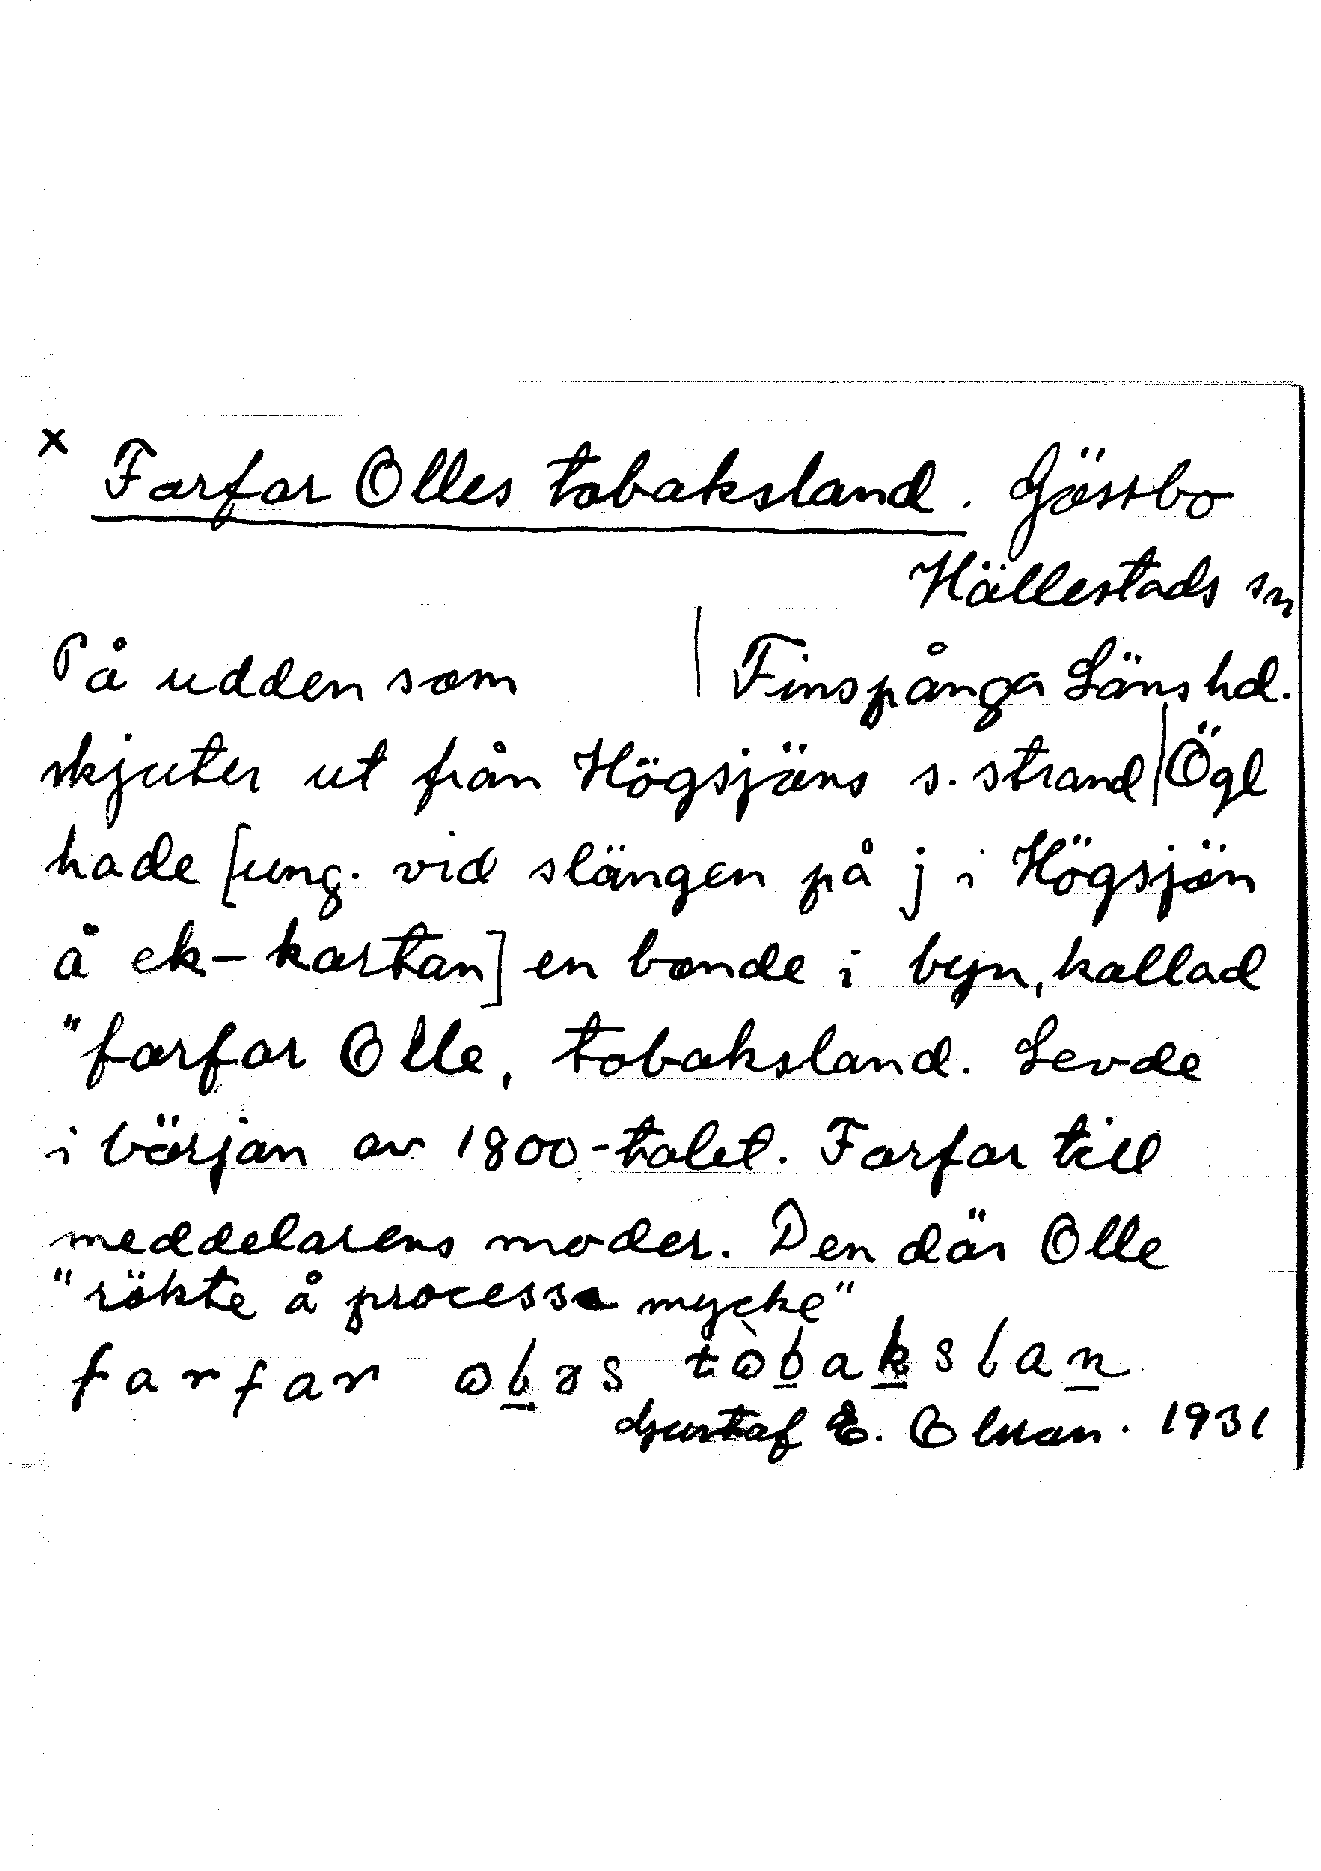 x Farfar Olles tobaksland. Gössbo
Hällestads sn
På udden som | Finspånga Läns hd.
skjuter ut från Högsjöns s. strand | Ögl
hade [ung. vid slängen på j i Högsjön
å ek-kartan] en bonde i byn, kallad
"farfar Olle, tobaksland. Levde
i början av 1800-talet. Farfar till
meddelarens moder. Den där Olle
"rökte å processa mycke"
farfar
Gustaf E. Olsson. 1931